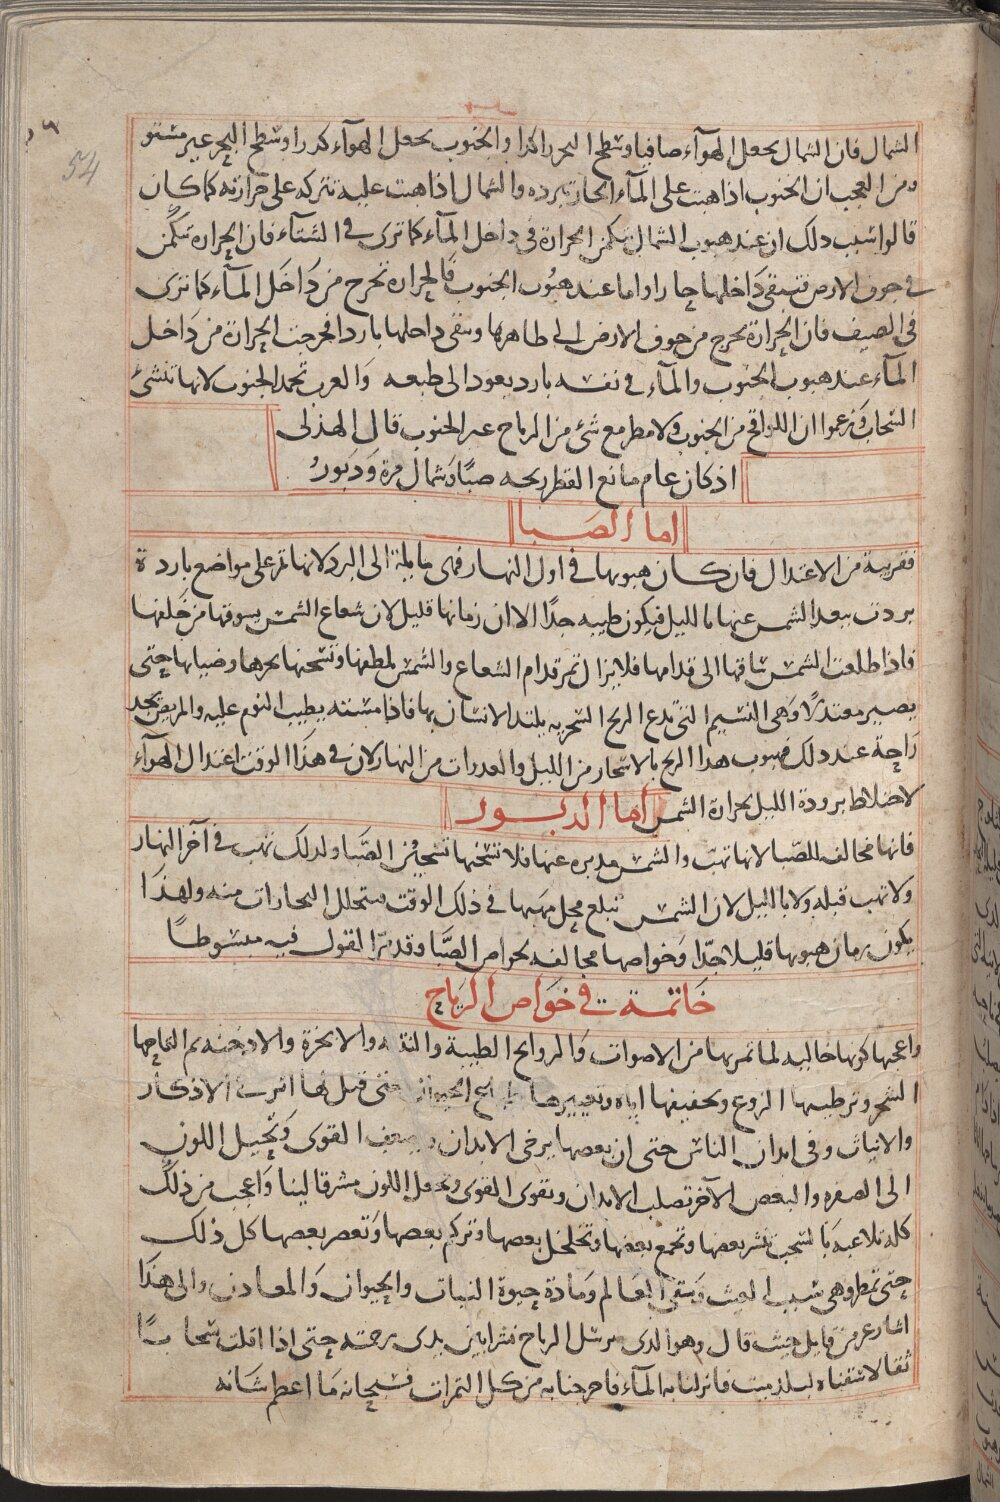 54
الشمال فان الشمال يجعل الهوآء صافيا وسطح البحر راكدا والجنوب يجعل الهوآء كدرا وسطح البحر غير مستو
ومن العجب ان الجنوب اذا هبت على المآء الحار تبرده والشمال اذا هبت عليه تتركه على حرارته كما كان
قالوا سبب ذلك ان عند هبوب الشمال تكمن الحرارة فى داخل المآء كما ترى فى الشتآء فان الحرارة تكمن
فى جوف الارض فتبقى داخلها حارا واما عند هبوب الجنوب فالحرارة تخرج من داخل المآء كما ترى
فى الصيف فان الحرارة تخرج من جوف الارض الى ظاهرها ويبقى داخلها باردا فخرجت الحرارة من داخل
المآء عند هبوب الجنوب والمآء فى نفسه بارد يعود الى طبعه والعرب تحمد الجنوب لانها تنشئ
السحاب وزعموا ان اللواقح من الجنوب ولا مطر مع شئ من الرياح غير الجنوب قال الهذلى
اذ كان عام مانع القطر ريحه صبا وشمال مرة ودبور
اما الصبا
فقريبة من الاعتدال فان كان هبوبها فى اول النهار فهى مايلة الى البرد لانها تمر على مواضع باردة
بردت ببعد الشمس عنها بالليل فيكون طيبه جدا الا ان زمانها قليل لان شعاع الشمس يسوقها من خلفها
فاذا طلعت الشمس ساقها الى قدامها فلا يزال تمر قدام الشعاع والشمس تلطفها وتسخنها بحرها وضيايها حتى
يصير معتدلا وهى النسيم التى تدع الريح السحريه يلتذ الانسان بها فاذا مسته يطيب النوم عليه والمريض يجد
راحة عند ذلك فهبوب هذا الريح بالاسحار من الليل والغدوات من النهار لان فى هذا الوقت اعتدال الهوآء
لاختلاط برودة الليل بحرارة الشمس اما الدبور
فانها مخالفة للصبا لانها تهب والشمس مدبرة عنها فلا تسخنها تسخين الصبا ولذلك تهب فى آخر النهار
ولا تهب قبله ولا بالليل لان الشمس تبلغ محل مهبها فى ذلك الوقت فيتحلل البخارات منه ولهذا
يكون زمان هبوبها قليلا جدا وخواصها مخالفة لخواص الصبا وقد مر القول فيه مبسوطا
خاتمة فى خواص الرياح
واعجبها كونها حاليه لما تمر بها من الاصوات والروايح الطيبة والنتنة والابخرة والادخنه ثم القاحها
الشجر وترطيبها الزروع وتجفيفها اياه وتغييرها الحيوان حتى قيل لها اثر فى الاذكار
والايناث وفى ابدان الناس حتى ان بعضها يرخى الابدان ويضعف القوى وتحيل اللون
الى الصفره والبعض الآخر تصلب الابدان وتقوى القوى وتجعل اللون مشرقا لينا واعجب من ذلك
كله تلاعبه بالسحب تنشر بعضها وتجمع بعضها وتخلخل بعضها وتركم بعضها وتعصر بعضها كل ذلك
حتى تمطر وهى سبب الغيث وتبقى العالم ومادة حيوة النبات والحيوان والمعادن والى هذا
اشار عز من قايل حيث قال وهو الذى يرسل الرياح نشرا بين يدى رحمته حتى اذا اقلت سحابا
ثقالا سقناه لبلد ميت فانزلنا به المآء فاخرجنا به من كل الثمرات فسبحانه ما اعظم شانه